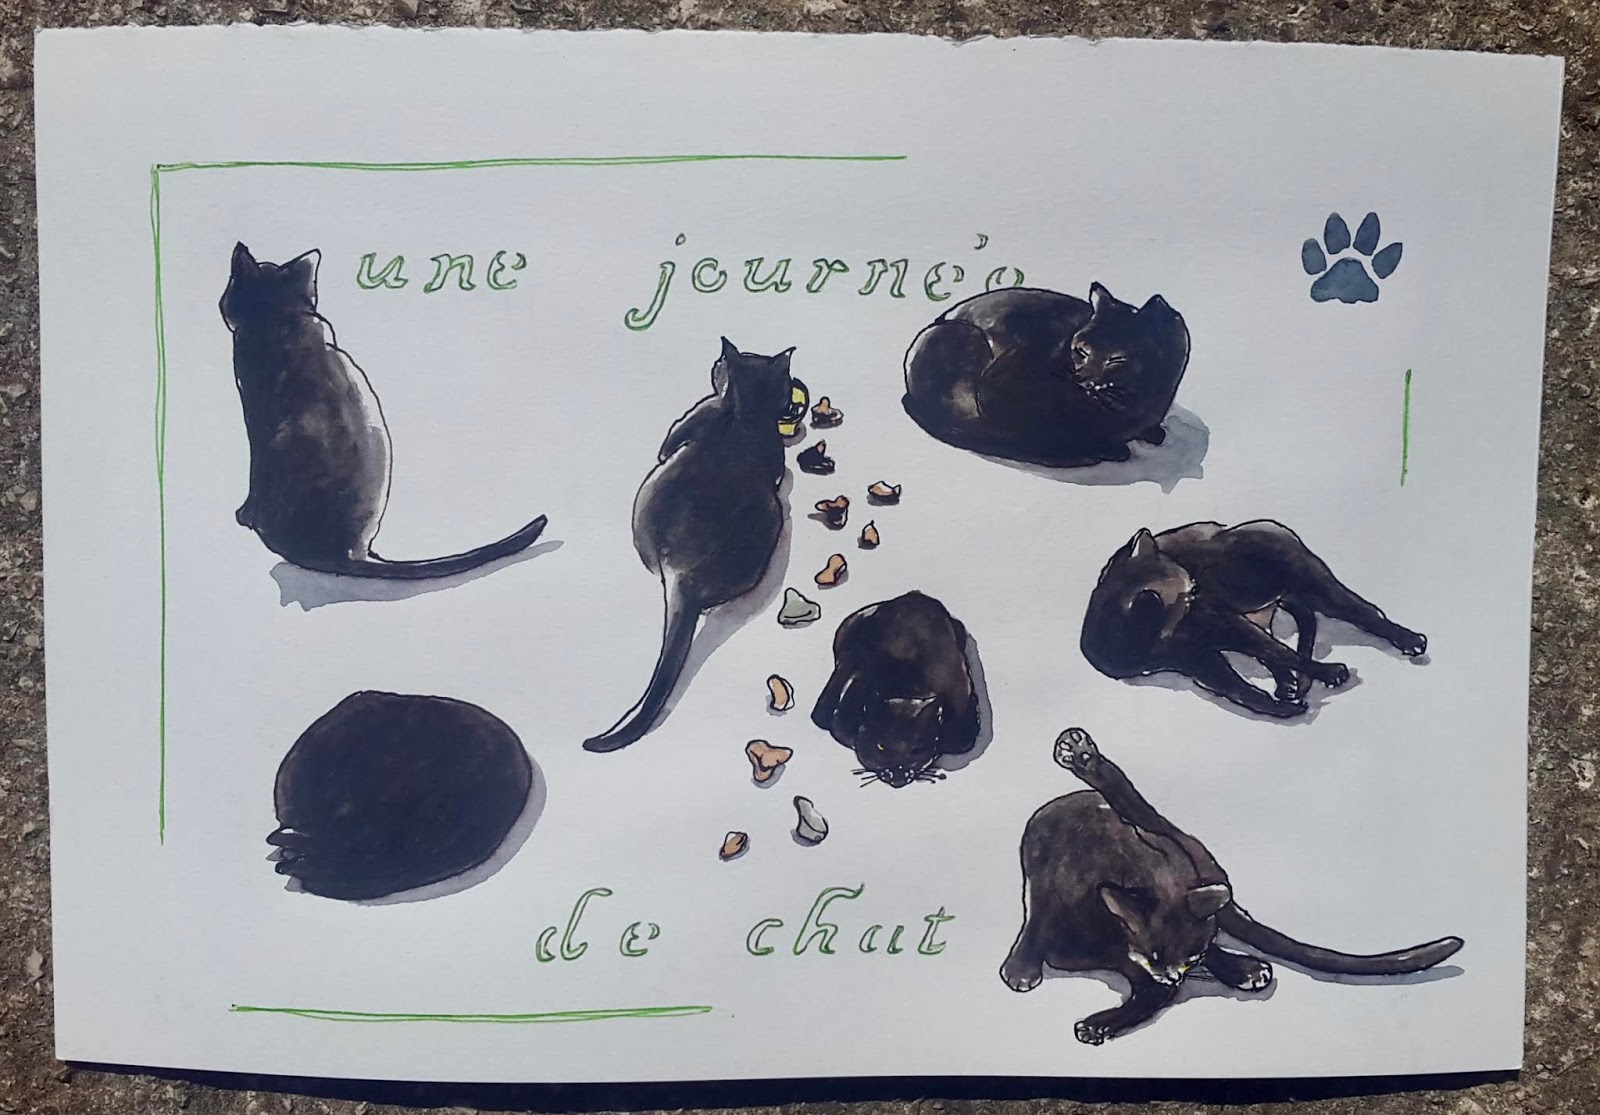 une journée
de chat